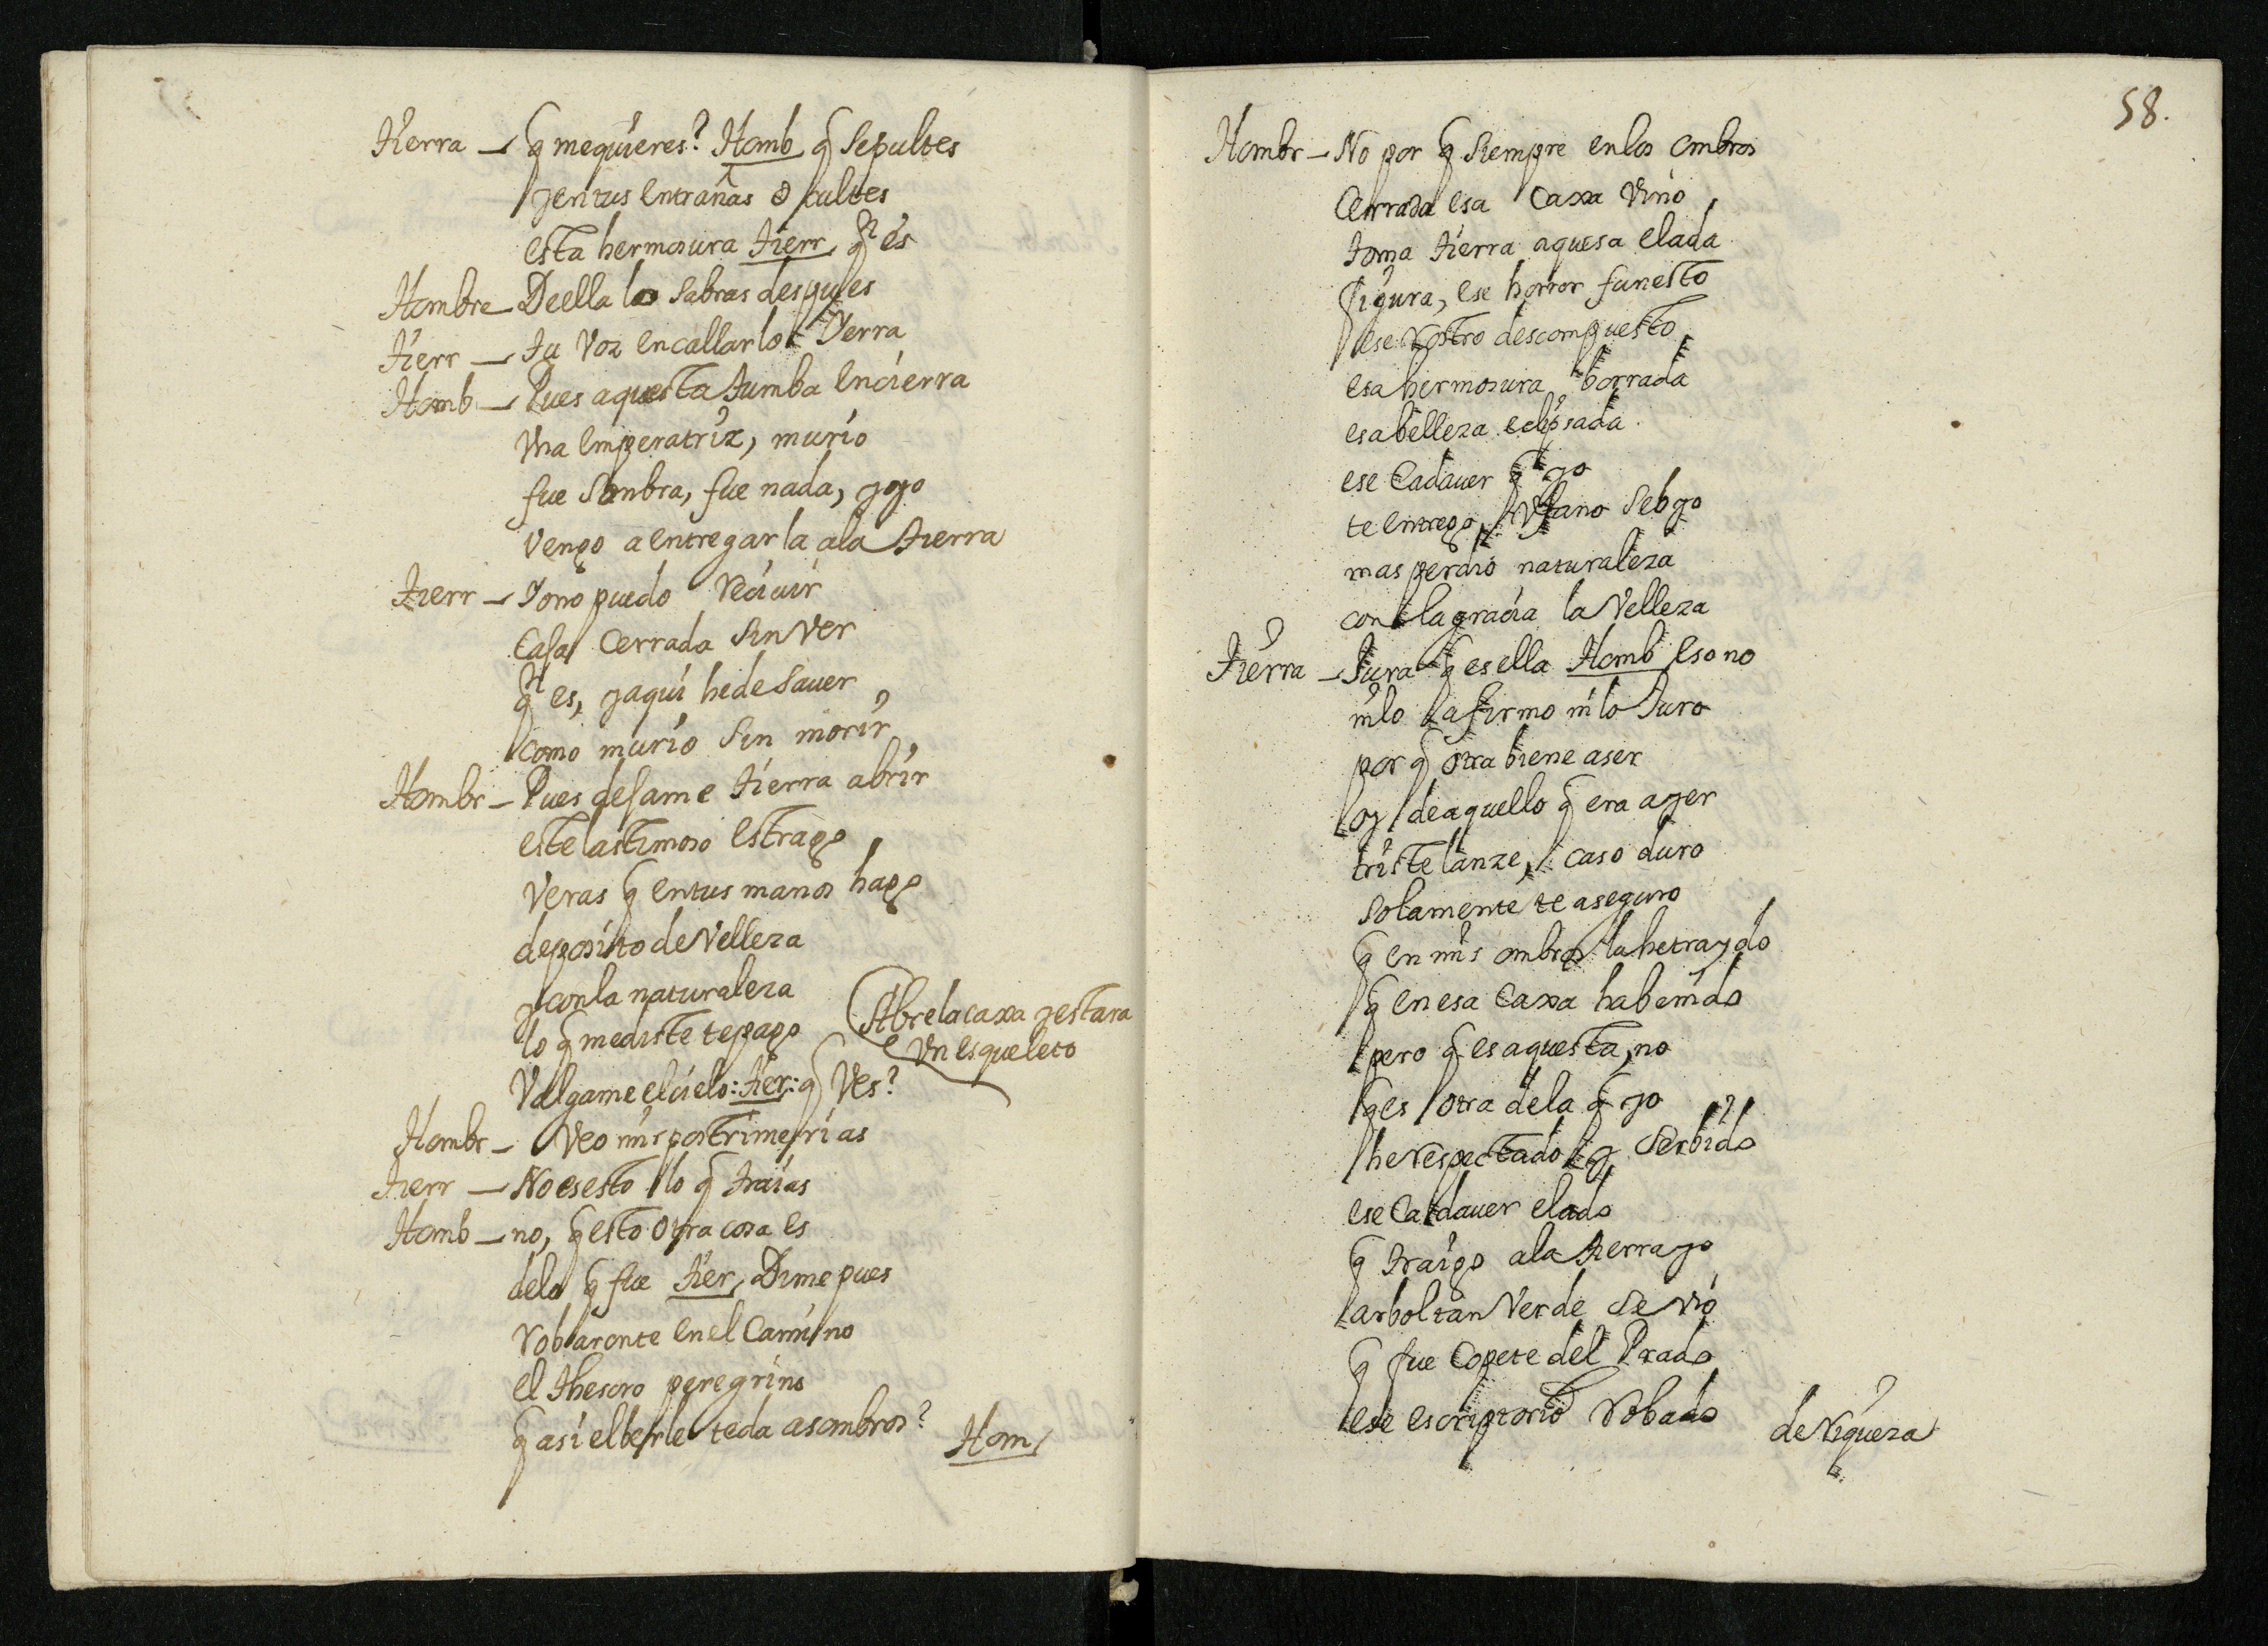 Tierra — q̃ mequieres? Homb q̃ Sepultes
yentus entrañas ocultes
esta hermosura tierr qⁿ es
Hombre — Deella lo Sabras despues
tierr — tu Voz encallarlo Yerra
Homb — Pues aquesta tumba encierra
Vna emperatriz, murio
fue Sombra, fue nada, yoyo
vengo a entregarla ala tierra
tierr — Yono puedo Recivir
Casa Cerrada Sin ver
qⁿ es, yaqui hede Saver
como murio Sin morir
Hombr — Pues desame tierra abrir
este lastimoso estrago
veras q̃ entus manos hago
deposito de Velleza
yconla naturaleza
lo q̃ mediste tepago
Abrelacaxa yestara
Vn esqueleto
Valgame elcielo: tier: q̃ Ves?
Hombr — Veo mis postrimerias
tierr — No es esto lo q̃ traias
Homb — no, q̃ esto otra cosa es
delo q̃ fue tier, Dime pues
Robaronte enel Camino
el thesoro peregrino
q̃ asi elberle teda asombros?
Hom,
58.
Hombr — No por q̃ Siempre enlos ombros
Cerrada esa Caxa Vino
toma tierra aquesa elada
figura, ese horror funesto
ese Rostro descompuesto
esa hermosura borrada
esa belleza eclipsada.
ese Cadaver q̃ yo
te entrego, Vfano Sebyo
mas perdio naturaleza
con la gracia la Velleza
Tierra — Jura q̃ es ella Homb eso no
nilo afirmo nilo Juro
por q̃ otra biene aser
oy deaquello q̃ era ayer
triste lanze, caso duro
solamente te aseguro
q̃ en mis ombros lahetraydo
q̃ enesa Caxa habenido
pero q̃ es aquesta, no
q̃ es otra dela q̃ yo
he respectado y Serbido
ese Cadaver elado
q̃ traigo ala tierra yo
arbol tan Verde se vio
q̃ fue Copete del Prado
ese escriptorio Robado
deRiqueza